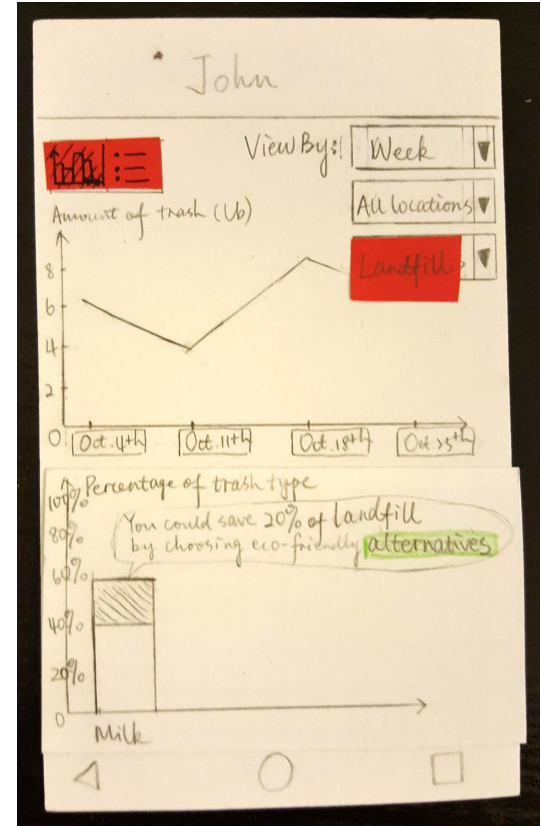 John
View By:
Week
All locations
Landfill
Amount of trash (Lb)
8
6
4
2
0
Oct. 4th
Oct. 11th
Oct. 18th
Oct. 25th
Percentage of trash type
100%
80%
60%
40%
20%
0
You could save 20% of landfill
by choosing eco-friendly alternatives
Milk